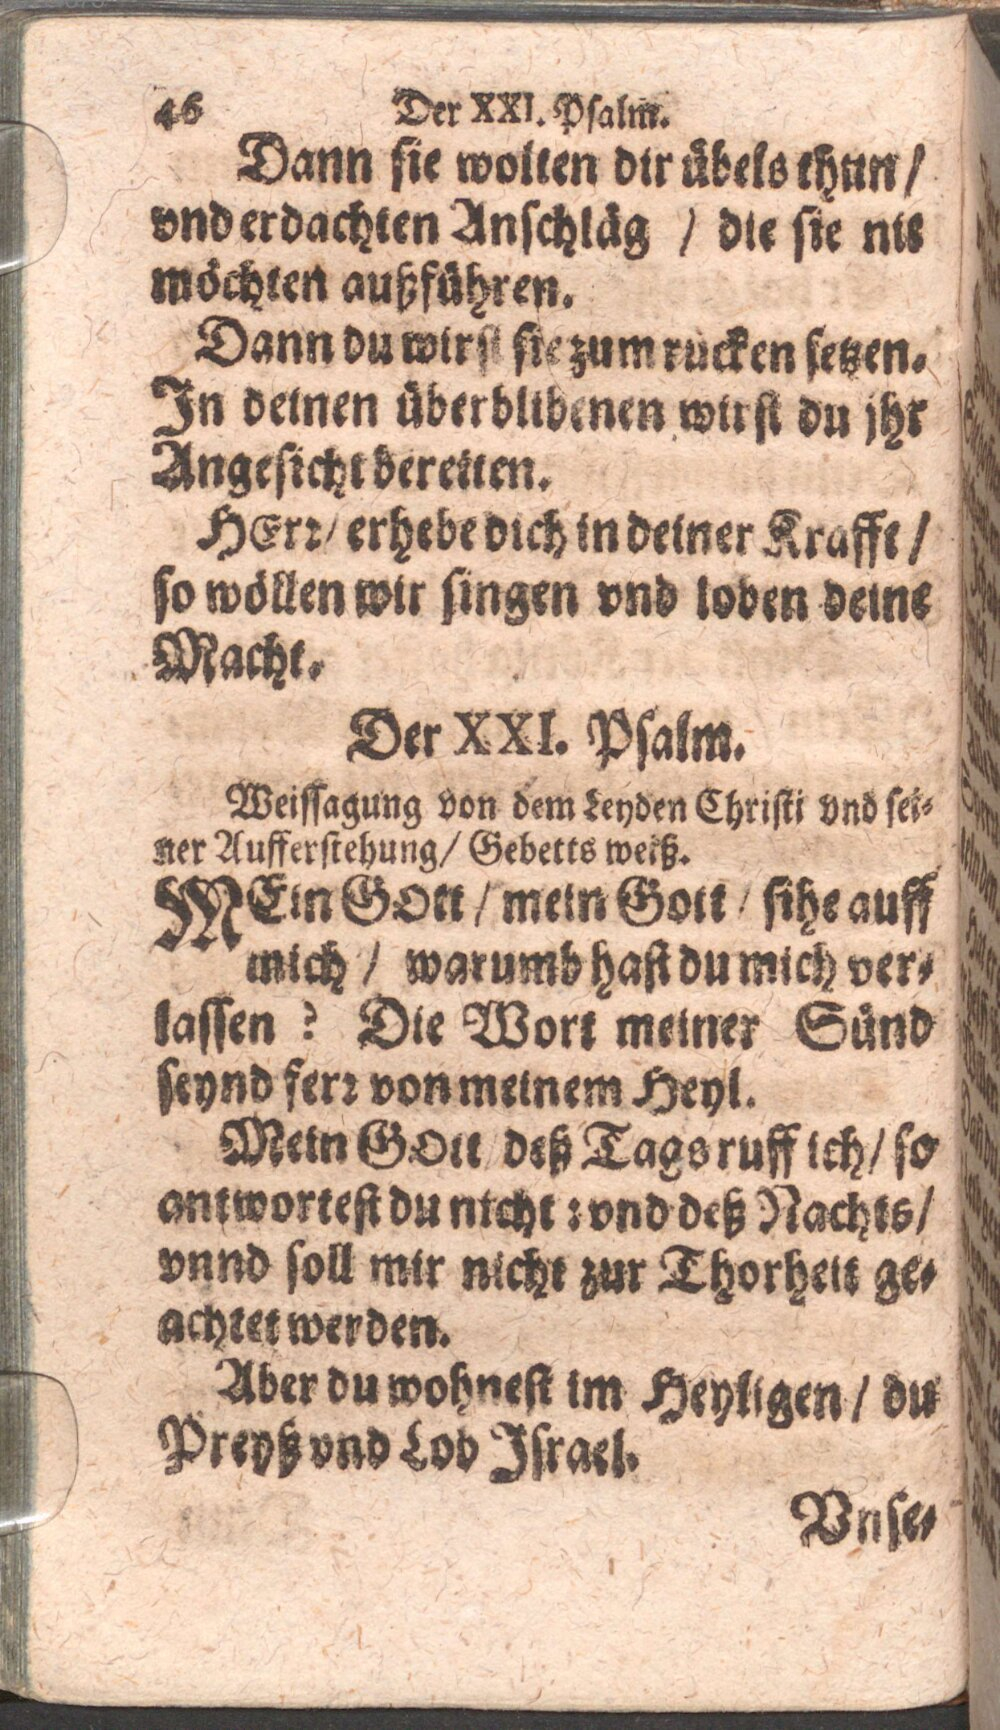 46 Der XXI. Psalm.
Dann sie wolten dir übels thun /
vnd erdachten Anschläg / die sie nit
möchten außführen.
Dann du wirst sie zum rucken setzen.
In deinen überblibenen wirst du jhr
Angesicht bereiten.
HErr / erhebe dich in deiner Krafft /
so wöllen wir singen vnd loben deine
Macht.
Der XXI. Psalm.
Weissagung von dem Leyden Christi vnd sei-
ner Aufferstehung / Gebetts weiß.
MEin GOtt / mein Gott / sihe auff
mich / warumb hast du mich ver-
lassen ? Die Wort meiner Sünd
seynd ferr von meinem Heyl.
Mein GOtt / deß Tags ruff ich / so
antwortest du nicht : vnd deß Nachts /
vnnd soll mir nicht zur Thorheit ge-
achtet werden.
Aber du wohnest im Heyligen / du
Preyß vnd Lob Israel.
Vnse-